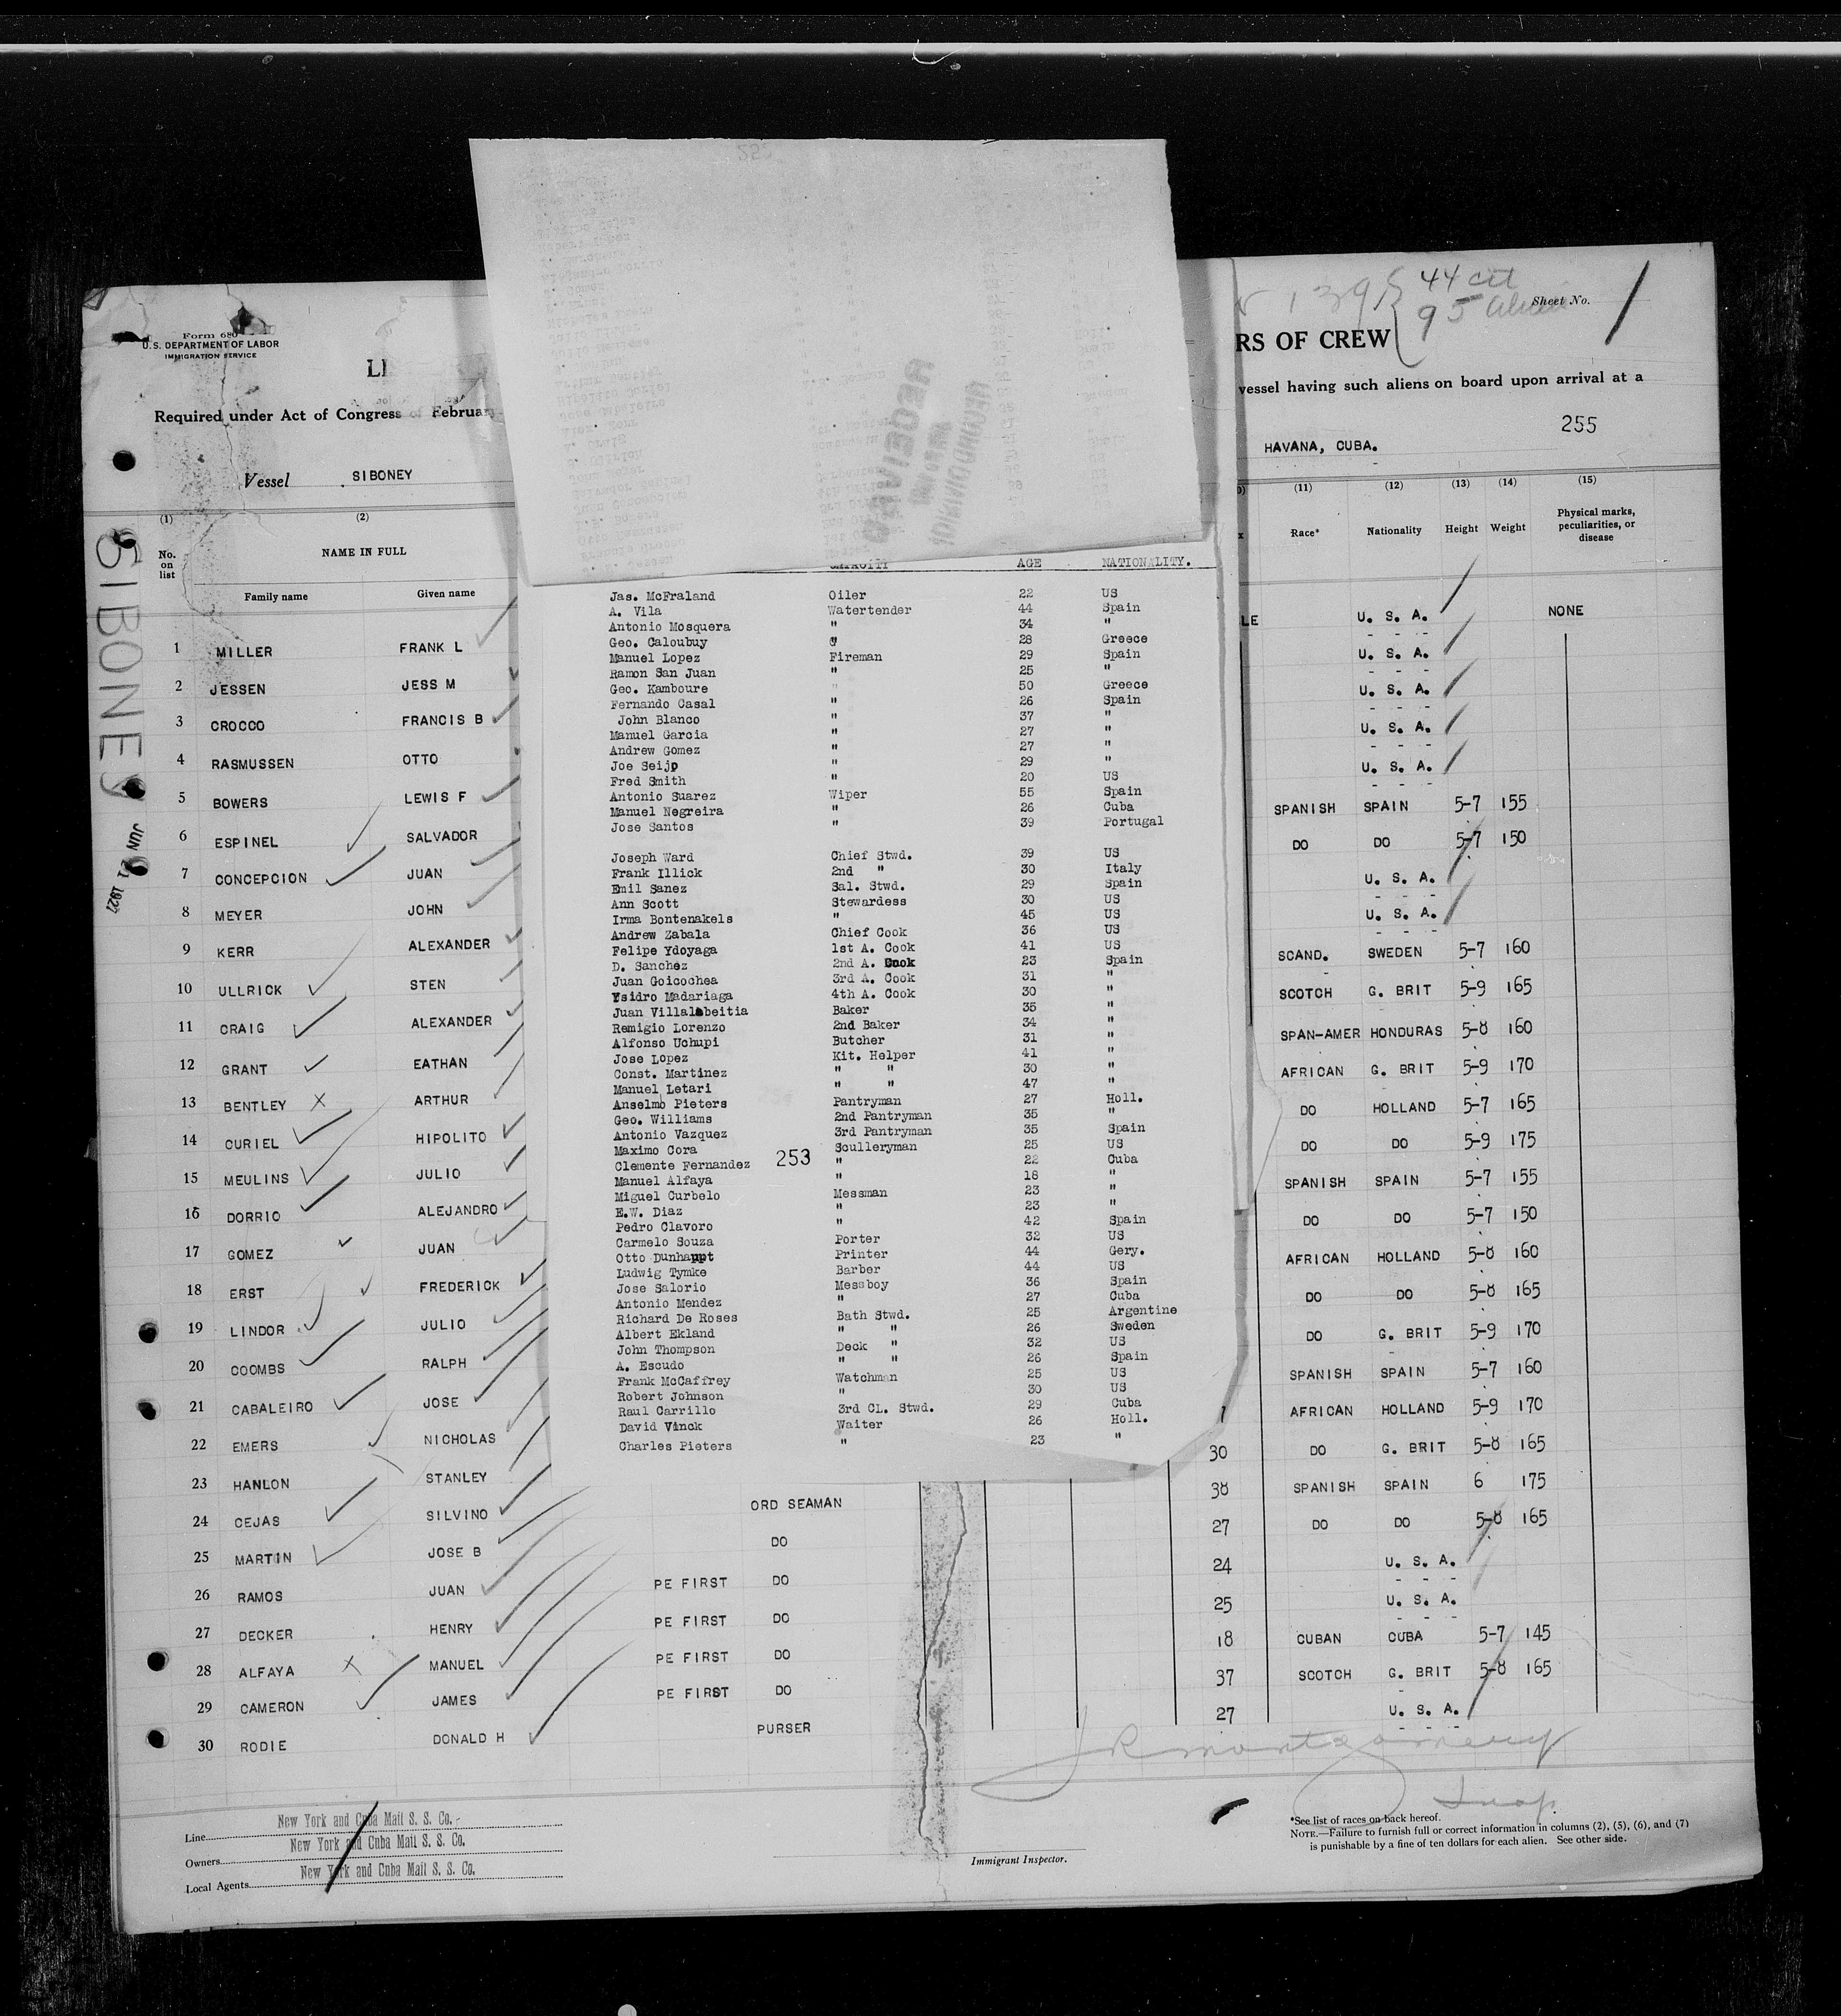 44 cit
139
95 alien
Sheet No. 1
Form 680
U.S. DEPARTMENT OF LABOR
IMMIGRATION SERVICE
LI
RS OF CREW
Required under Act of Congress of Februar
vessel having such aliens on board upon arrival at a
255
Vessel SIBONEY
HAVANA, CUBA.
SIBONEY
JUN 21 1927
(1) (2) (11) (12) (13) (14) (15)
No. on list
NAME IN FULL
Family name Given name
Race* Nationality Height Weight Physical marks, peculiarities, or disease
1 MILLER FRANK L
2 JESSEN JESS M
3 CROCCO FRANCIS B
4 RASMUSSEN OTTO
5 BOWERS LEWIS F
6 ESPINEL SALVADOR
7 CONCEPCION JUAN
8 MEYER JOHN
9 KERR ALEXANDER
10 ULLRICK STEN
11 CRAIG ALEXANDER
12 GRANT EATHAN
13 BENTLEY X ARTHUR
14 CURIEL HIPOLITO
15 MEULINS JULIO
16 DORRIO ALEJANDRO
17 GOMEZ JUAN
18 ERST FREDERICK
19 LINDOR JULIO
20 COOMBS RALPH
21 CABALEIRO JOSE
22 EMERS NICHOLAS
23 HANLON STANLEY
24 CEJAS SILVINO ORD SEAMAN
25 MARTIN JOSE B DO
26 RAMOS JUAN PE FIRST DO
27 DECKER HENRY PE FIRST DO
28 ALFAYA X MANUEL PE FIRST DO
29 CAMERON JAMES PE FIRST DO
30 RODIE DONALD H PURSER
AGE NATIONALITY.
Jas. McFraland Oiler 22 US
A. Vila Watertender 44 Spain
Antonio Mosquera " 34 "
Geo. Caloubuy " 28 Greece
Manuel Lopez Fireman 29 Spain
Ramon San Juan " 25 "
Geo. Kamboure " 50 Greece
Fernando Casal " 26 Spain
John Blanco " 37 "
Manuel Garcia " 27 "
Andrew Gomez " 27 "
Joe Seijp " 29 "
Fred Smith " 20 US
Antonio Suarez Wiper 55 Spain
Manuel Negreira " 26 Cuba
Jose Santos " 39 Portugal
Joseph Ward Chief Stwd. 39 US
Frank Illick 2nd " 30 Italy
Emil Sanez Sal. Stwd. 29 Spain
Ann Scott Stewardess 30 US
Irma Bontenakels " 45 US
Andrew Zabala Chief Cook 36 US
Felipe Ydoyaga 1st A. Cook 41 US
D. Sanchez 2nd A. Cook 23 Spain
Juan Goicochea 3rd A. Cook 31 "
Ysidro Madariaga 4th A. Cook 30 "
Juan Villalabeitia Baker 35 "
Remigio Lorenzo 2nd Baker 34 "
Alfonso Uchupi Butcher 31 "
Jose Lopez Kit. Helper 41 "
Const. Martinez " " 30 "
Manuel Letari " " 47 "
Anselmo Pieters Pantryman 27 Holl.
Geo. Williams 2nd Pantryman 35 "
Antonio Vazquez 3rd Pantryman 35 Spain
Maximo Cora Sculleryman 25 US
Clemente Fernandez 253 " 22 Cuba
Manuel Alfaya " 18 "
Miguel Curbelo Messman 23 "
E.W. Diaz " 23 "
Pedro Clavoro " 42 Spain
Carmelo Souza Porter 32 US
Otto Dunhaupt Printer 44 Gery.
Ludwig Tymke Barber 44 US
Jose Salorio Messboy 36 Spain
Antonio Mendez " 27 Cuba
Richard De Roses Bath Stwd. 25 Argentine
Albert Ekland " " 26 Sweden
John Thompson Deck " 32 US
A. Escudo " " 26 Spain
Frank McCaffrey Watchman 25 US
Robert Johnson " 30 US
Raul Carrillo 3rd CL. Stwd. 29 Cuba
David Vinck Waiter 26 Holl.
Charles Pieters " 23 "
LE U. S. A. NONE
U. S. A.
U. S. A.
U. S. A.
U. S. A.
SPANISH SPAIN 5-7 155
DO DO 5-7 150
U. S. A.
U. S. A.
SCAND. SWEDEN 5-7 160
SCOTCH G. BRIT 5-9 165
SPAN-AMER HONDURAS 5-8 160
AFRICAN G. BRIT 5-9 170
DO HOLLAND 5-7 165
DO DO 5-9 175
SPANISH SPAIN 5-7 155
DO DO 5-7 150
AFRICAN HOLLAND 5-8 160
DO DO 5-8 165
DO G. BRIT 5-9 170
SPANISH SPAIN 5-7 160
AFRICAN HOLLAND 5-9 170
30 DO G. BRIT 5-8 165
38 SPANISH SPAIN 6 175
27 DO DO 5-8 165
24 U. S. A.
25 U. S. A.
18 CUBAN CUBA 5-7 145
37 SCOTCH G. BRIT 5-8 165
27 U. S. A.
J R Montgomery
Insp.
Line New York and Cuba Mail S. S. Co.
Owners New York and Cuba Mail S. S. Co.
Local Agents New York and Cuba Mail S. S. Co.
Immigrant Inspector.
*See list of races on back hereof.
NOTE.—Failure to furnish full or correct information in columns (2), (5), (6), and (7)
is punishable by a fine of ten dollars for each alien. See other side.